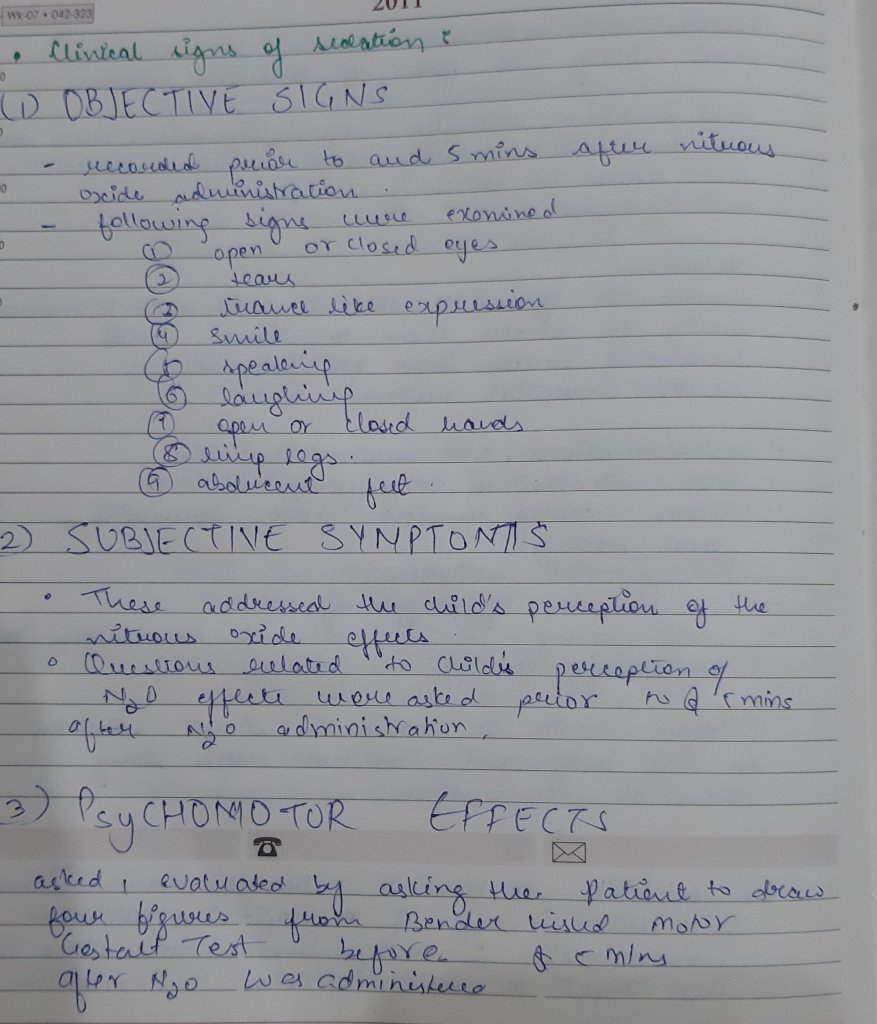 WK-07 • 042-323
2011
• Clinical signs of sedation :
(1) OBJECTIVE SIGNS
- recorded prior to and 5 mins after nitrous
oxide administration.
- following signs were examined
① open or closed eyes
② tears
③ trance like expression
④ smile
⑤ speaking
⑥ laughing
⑦ open or closed hands
⑧ limp legs.
⑨ abducent feet.
2) SUBJECTIVE SYMPTOMS
• These addressed the child's perception of the
nitrous oxide effects
• Questions related to child's perception of
N2O effects were asked prior to & 5 mins
after N2O administration,
3) PsyCHOMOTOR EFFECTS
asked, evaluated by asking the patient to draw
four figures from Bender visual motor
Gestalt Test before & 5 mins
after N2O was administered